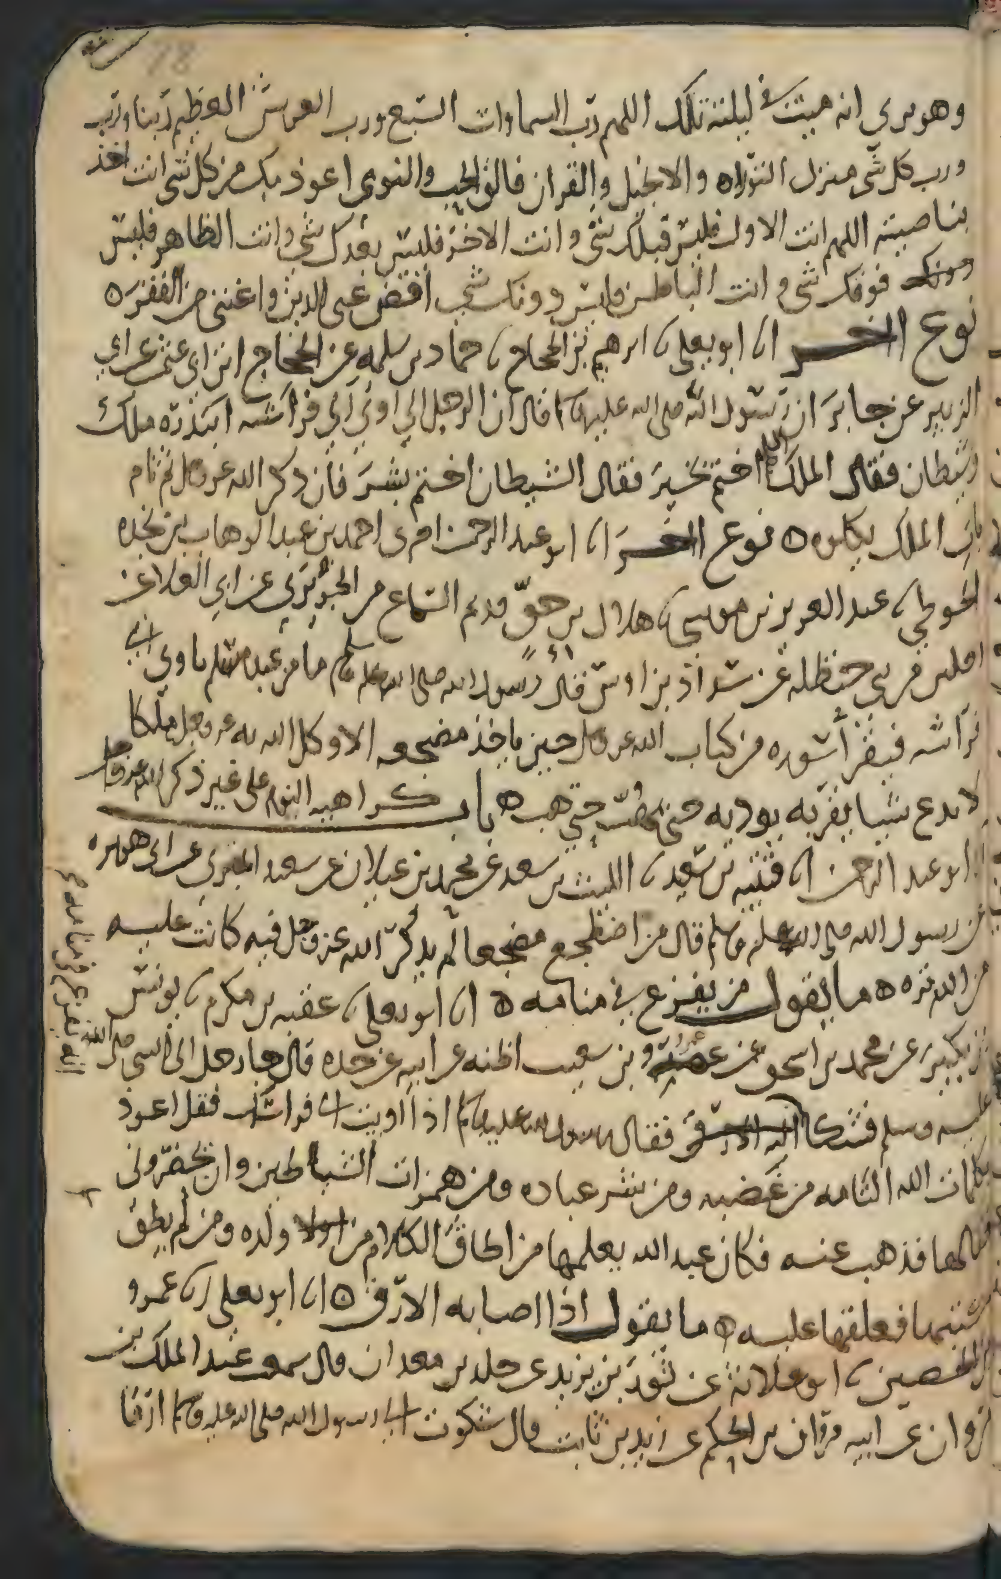 وهو يرى انه ميت في ليلته تلك اللهم رب السماوات السبع ورب العرش العظيم ربنا ورب
ورب كل شى منزل التوراه والانجيل والقران فالق الحب والنوى اعوذ بك من كل شى انت اخذ
بناصيته اللهم انت الاول فليس قبلك شى وانت الاخر فليس بعدك شى وانت الظاهر فليس
فوقك شى وانت الباطن فليس دونك شى اقض عنى الدين واغننى من الفقر ه
نوع اخر انا ابو يعلى نا ابرهيم بن الحجاج نا حماد بن سلمه عن الحجاج بن ابى عثمن عن ابي
الزبير عن جابر ان رسول الله صلى الله عليه وسلم قال ان الرجل اذا اوى الي فراشه ابتدره ملك
وشيطان فقال الملك اللهم اختم بخير فقال الشيطان اختم بشر فان ذكر الله عز وجل ثم نام
بات الملك يكلوه ه نوع اخر انا ابو عبد الرحمن اخبرنى احمد بن عبد الوهاب بن نجده
الحوطي نا عبد العزيز بن موسى نا هلال بن حق قديم السماع من الجريرى عن ابي العلا عن
رجلين من بنى حنظله عن شداد بن اوس قال قال رسول الله صلى الله عليه وسلم ما من عبد مسلم ياوى الى
فراشه فيقرأ سوره من كتاب الله عز وجل حين ياخذ مضجعه الا وكل الله به عز وجل ملكا
لا يدع شيا يقربه يوذيه حتى يهب متى هب ه باب كراهيه النوم على غير ذكر الله عز وجل
انا ابو عبد الرحمن انا قتيبه بن سعيد نا الليث بن سعد عن محمد بن عجلان عن سعيد المقبرى عن ابى هريره
عن رسول الله صلى الله عليه وسلم قال من اضطجع مضجعا لم يذكر الله عز وجل فيه كانت عليه
من الله تره ه ما يقول من يفزع في منامه ه انا ابو يعلى نا عقبه بن مكرم نا يونس
بن بكير عن محمد بن اسحق عن عمرو بن شعيب اظنه عن ابيه عن جده قال جا رجل الى النبى صلى الله
عليه وسلم فشكا فقال رسول الله صلى الله عليه وسلم اذا اويت الى فراشك فقل اعوذ
انه يفزع في منامه
بكلمات الله التامه من غضبه ومن شر عباده ومن همزات الشياطين وان يحضرونى
فقالها فذهب عنه فكان عبد الله يعلمها من اطاق الكلام من ولده ومن لم يطق
كتبها فعلقها عليه ه ما يقول اذا اصابه الارق ه انا ابو يعلى نا عمرو
بن الحصين نا ابن علاثة عن ثور بن يزيد عن خالد بن معدان قال سمعت عبد الملك بن
مروان عن ابيه مروان بن الحكم عن زيد بن ثابت قال شكوت الى رسول الله صلى الله عليه وسلم ارقا